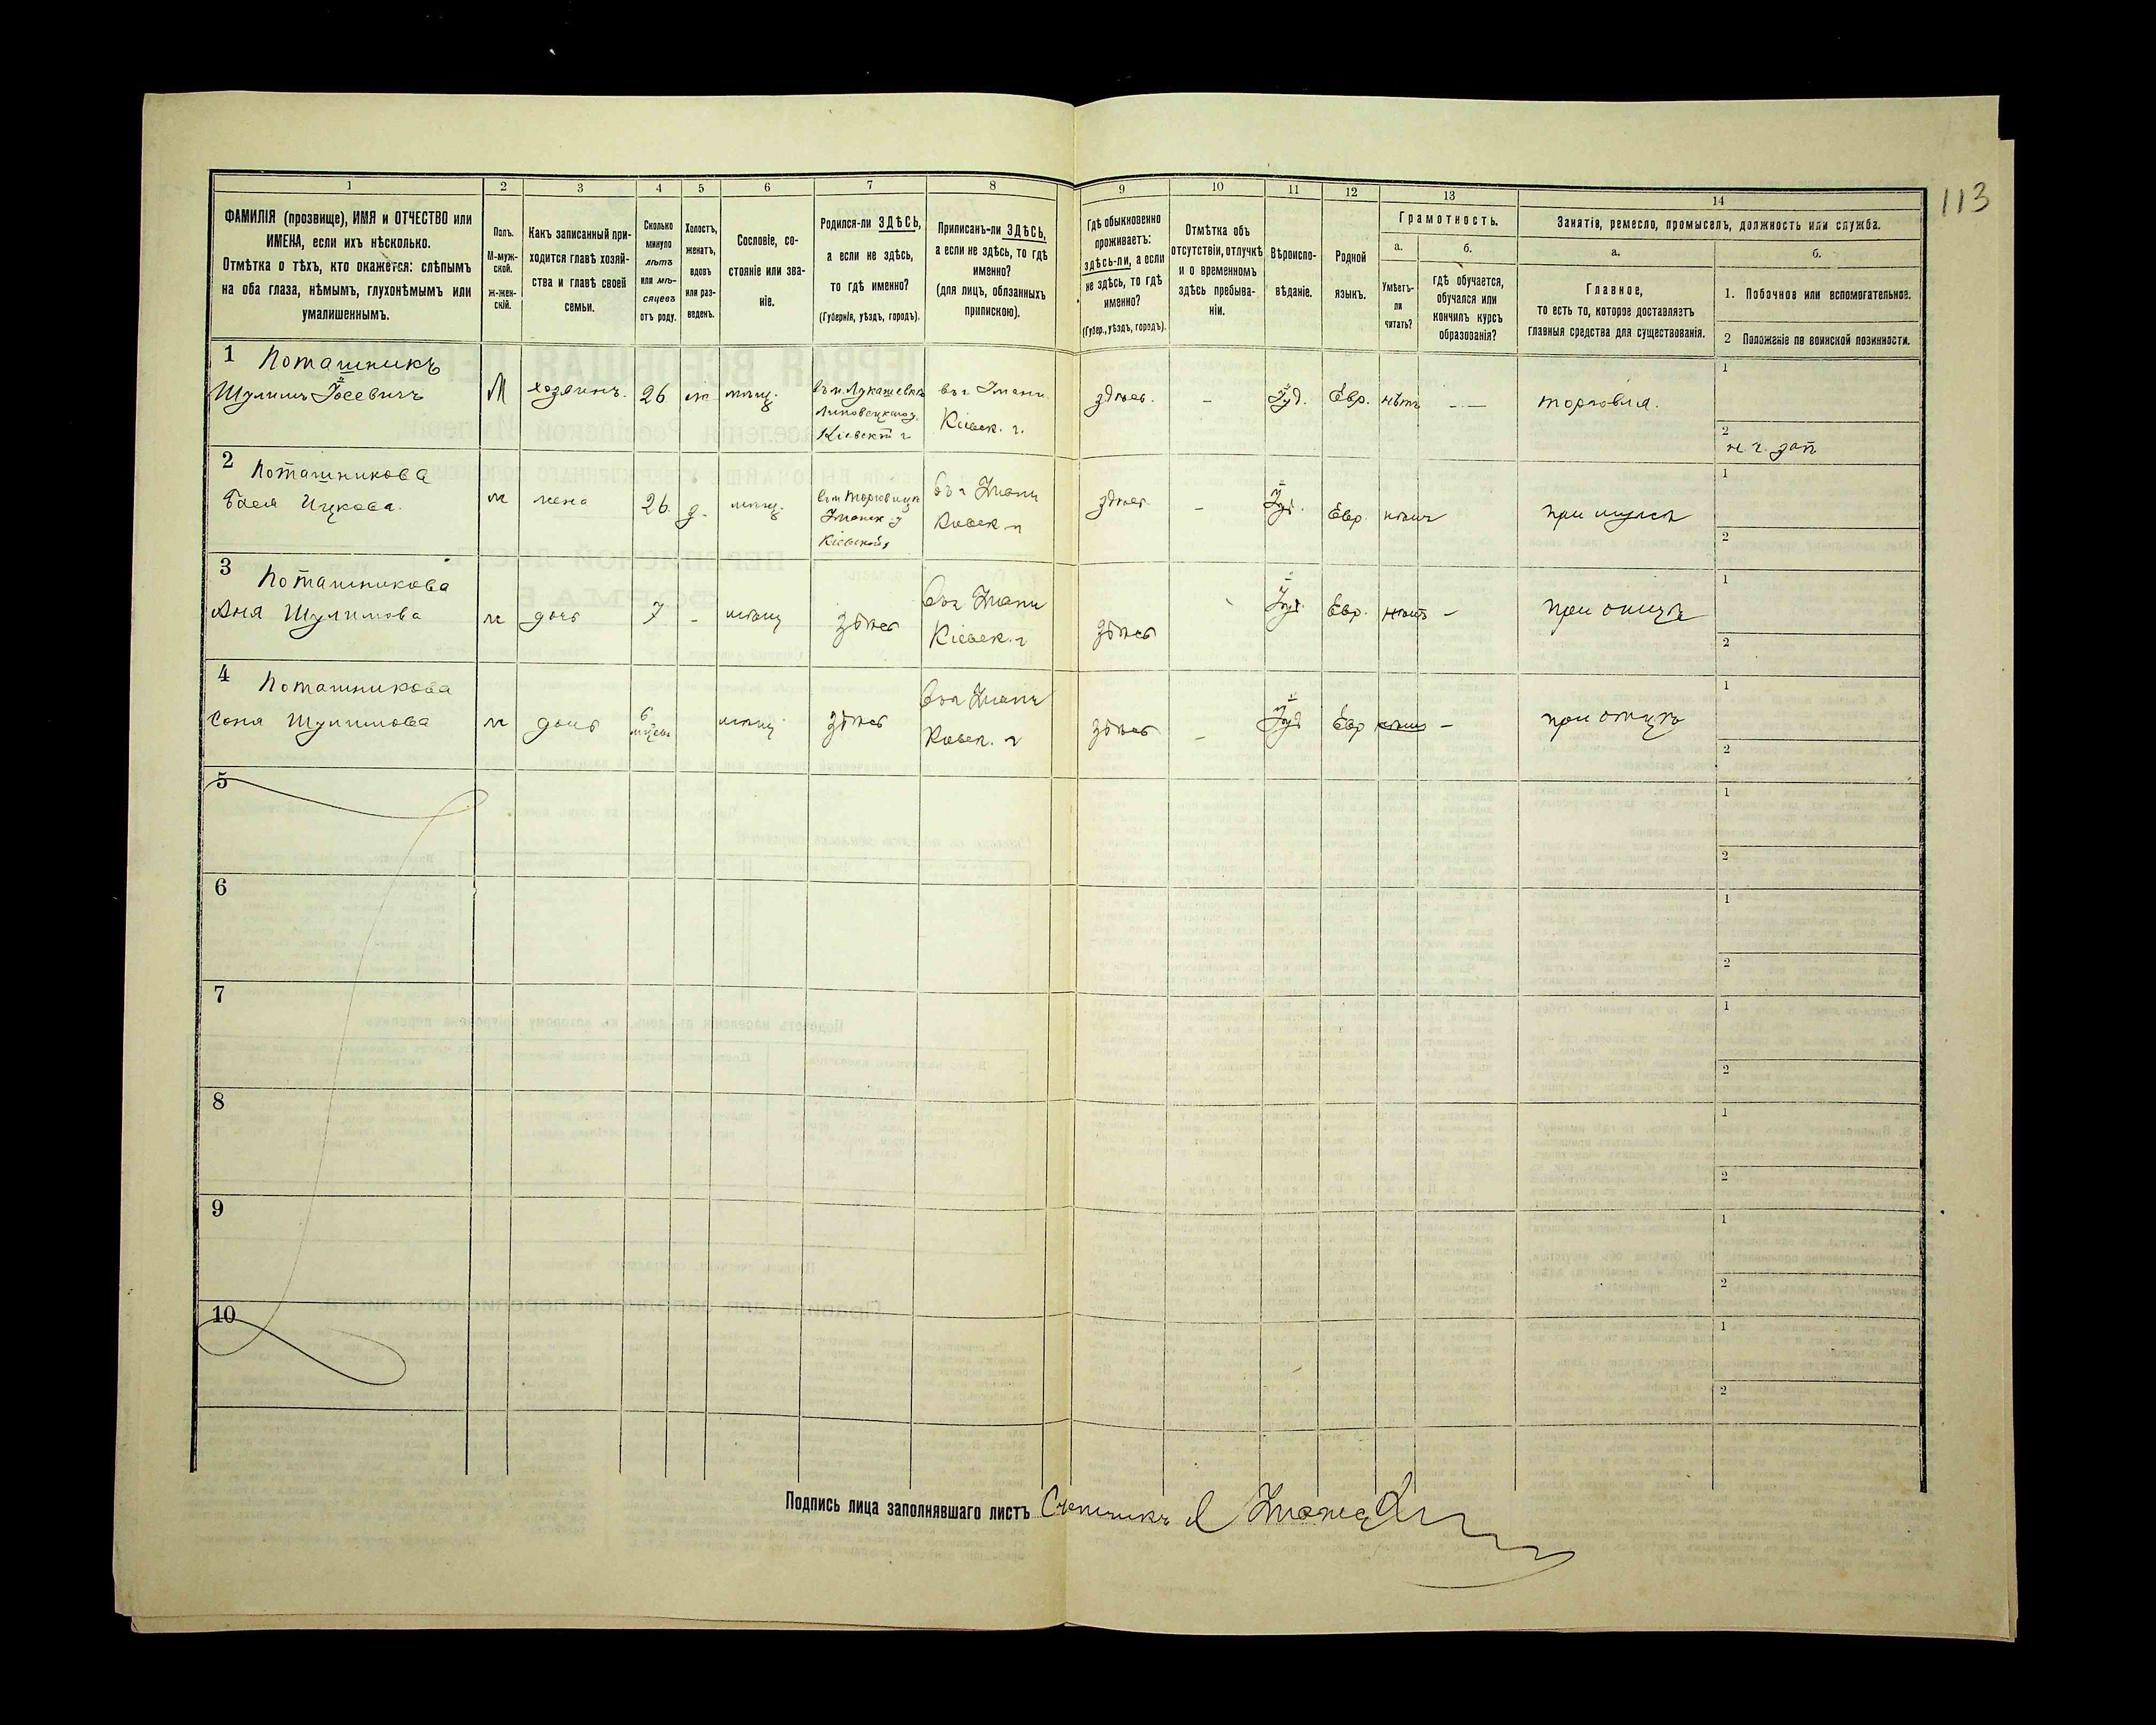 113
1 2 3 4 5 6 7 8 9 10 11 12 13 14
ФАМИЛІЯ (прозвище), ИМЯ и ОТЧЕСТВО или
ИМЕНА, если ихъ нѣсколько.
Отмѣтка о тѣхъ, кто окажется: слѣпымъ
на оба глаза, нѣмымъ, глухонѣмымъ или
умалишеннымъ.
Полъ.
М-муж-
ской.
ж-жен-
скій.
Какъ записанный при-
ходится главѣ хозяй-
ства и главѣ своей
семьи.
Сколько
минуло
лѣтъ
или мѣ-
сяцевъ
отъ роду.
Холостъ,
женатъ,
вдовъ
или раз-
веденъ.
Сословіе, со-
стояніе или зва-
ніе.
Родился-ли ЗДѢСЬ,
а если не здѣсь,
то гдѣ именно?
(Губернія, уѣздъ, городъ).
Приписанъ-ли ЗДѢСЬ,
а если не здѣсь, то гдѣ
именно?
(для лицъ, обязанныхъ
припискою).
Гдѣ обыкновенно
проживаетъ:
здѣсь-ли, а если
не здѣсь, то гдѣ
именно?
(Губер., уѣздъ, городъ).
Отмѣтка объ
отсутствіи, отлучкѣ
и о временномъ
здѣсь пребыва-
ніи.
Вѣроиспо-
вѣданіе.
Родной
языкъ.
Грамотность.
а.
Умѣетъ-
ли
читать?
б.
гдѣ обучается,
обучался или
кончилъ курсъ
образованія?
Занятія, ремесло, промыселъ, должность или служба.
а.
Главное,
то есть то, которое доставляетъ
главныя средства для существованія.
б.
1. Побочное или вспомогательное.
2 Положеніе по воинской повинности.
1 Поташникъ
Шулимъ Іосевичъ
М
хозяинъ.
26
ж
мѣщ.
въ м. Лукашевкѣ
Липовецкаго у.
Кіевской г
въ г Умани
Кіевск. г.
здѣсь.
-
Іуд.
Евр.
нѣтъ
- -
торговля.
1
2
2 Поташникова
Бася Ицкова.
ж
жена
26
з.
мѣщ.
въ м Торговицѣ
Уманск. у
Кіевской г
въ г Умани
Кіевск г
здѣсь
-
Іуд.
Евр.
нѣтъ
при мужѣ
1
2
3 Поташникова
Аня Шулимова
ж
дочь
7
-
мѣщ
здѣсь
въ г Умани
Кіевск. г
здѣсь
Іуд.
Евр.
нѣтъ
-
при отцѣ
1
2
4 Поташникова
Соня Шулимова
ж
дочь
6
мѣщ
здѣсь
въ г Умани
Кіевск. г
здѣсь
-
Іуд
Евр
нѣтъ
-
при отцѣ
1
2
5
1
2
6
1
2
7
1
2
8
1
2
9
1
2
10
1
2
Подпись лица заполнявшаго листъ Счетчикъ